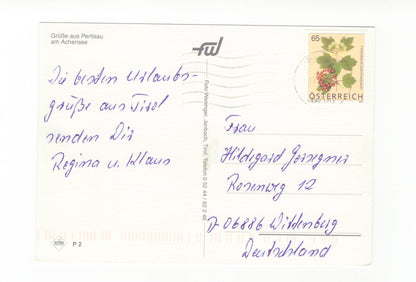 Grüße aus Pertisau
am Achensee
Die besten Urlaubs-
grüße aus Tirol
senden Dir
Regina u. Klaus
P 2
Foto Weisinger, Jenbach, Tirol, Telefon 0 52 44 / 62 2 46
65
ÖSTERREICH
Frau
Hildegard
Rosenweg 12
D-06886 Wittenberg
Deutschland